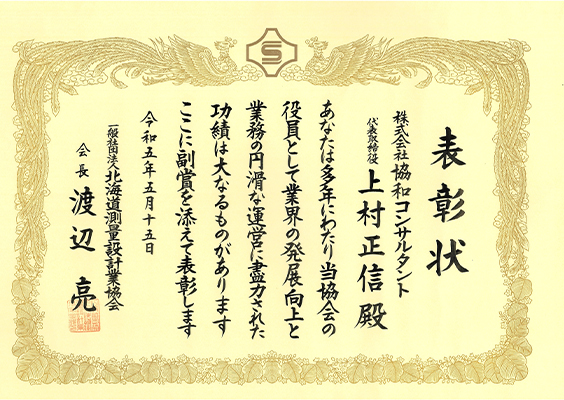 表彰状
株式会社協和コンサルタント
代表取締役 上村正信殿
あなたは多年にわたり当協会の
役員として業界の発展向上と
業務の円滑な運営に盡力された
功績は大なるものがあります
ここに副賞を添えて表彰します
令和五年五月十五日
一般社団法人北海道測量設計業協会
会長 渡辺 亮